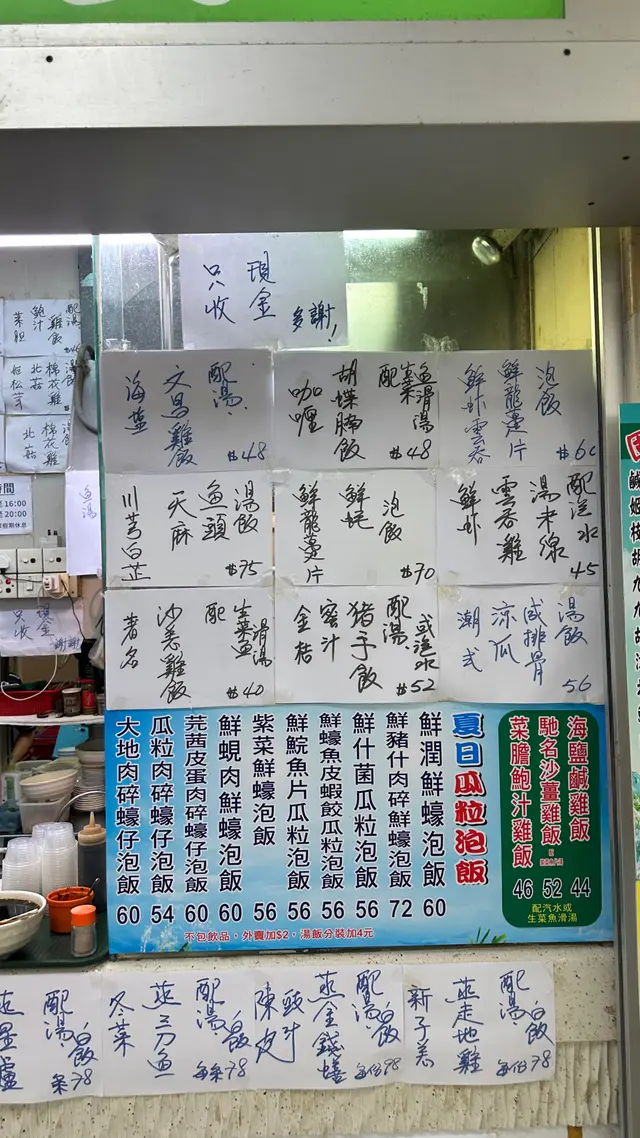 只收
現金
多謝！
菜胆
鮑汁
雞飯
配湯
北菇
棉花雞
湯飯
魚湯
至16:00
至20:00
只收
現金
謝謝
海鹽
文昌雞飯
配湯
$48
咖喱
胡蝶腩飯
配生菜魚滑湯
$48
鮮蝦雲吞
鮮龍躉片
泡飯
川芎白芷
天麻
魚頭
湯飯
$75
鮮龍躉片
鮮蚝
泡飯
$70
鮮蝦
雲吞雞
湯米線
配汽水
45
著名
沙姜雞飯
配
生菜魚滑湯
$40
金桔
蜜汁
豬手飯
配湯
或汽水
$52
潮式
涼瓜
咸排骨
湯飯
56
夏日瓜粒泡飯
鮮潤鮮蠔泡飯 60
鮮豬什肉碎鮮蠔泡飯 72
鮮什菌瓜粒泡飯 56
鮮蠔魚皮蝦餃瓜粒泡飯 56
鮮鯇魚片瓜粒泡飯 56
紫菜鮮蠔泡飯 56
鮮蜆肉鮮蠔泡飯 60
芫茜皮蛋肉碎蠔仔泡飯 60
瓜粒肉碎蠔仔泡飯 54
大地肉碎蠔仔泡飯 60
不包飲品，外賣加$2，湯飯分裝加4元
海鹽鹹雞飯 44
馳名沙薑雞飯 52
菜膽鮑汁雞飯 46
配汽水或
生菜魚滑湯
配湯,白飯
78
冬菜
蒸三刀魚
配湯,白飯
每条78
陳皮
豉汁
蒸金錢鱔
配湯,白飯
每份98
新子姜
蒸走地雞
配湯,飯
每份78